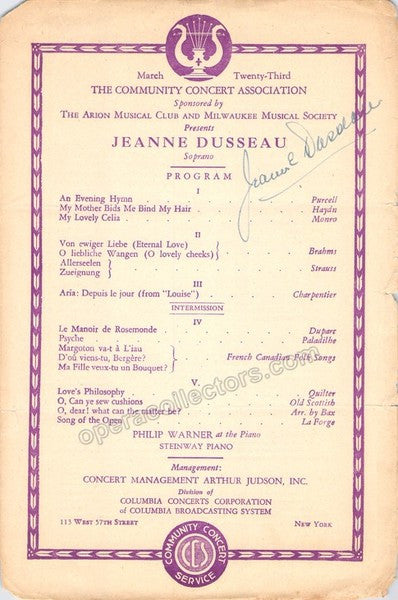 March Twenty-Third
THE COMMUNITY CONCERT ASSOCIATION
Sponsored by
THE ARION MUSICAL CLUB AND MILWAUKEE MUSICAL SOCIETY
Presents
JEANNE DUSSEAU
Soprano
Jeanne Dusseau
PROGRAM
I
An Evening Hymn Purcell
My Mother Bids Me Bind My Hair Haydn
My Lovely Celia Monro
II
Von ewiger Liebe (Eternal Love)
O liebliche Wangen (O lovely cheeks) } Brahms
Allerseelen
Zueignung } Strauss
III
Aria: Depuis le jour (from "Louise") Charpentier
INTERMISSION
IV
Le Manoir de Rosemonde Duparc
Psyche Paladilhe
Margoton va-t à L'iau
D'où viens-tu, Bergère? } French Canadian Folk Songs
Ma Fille veux-tu un Bouquet?
V.
Love's Philosophy Quilter
O, Can ye sew cushions Old Scottish
O, dear! what can the matter be? Arr. by Bax
Song of the Open La Forge
PHILIP WARNER at the Piano
STEINWAY PIANO
Management:
CONCERT MANAGEMENT ARTHUR JUDSON, INC.
Division of
COLUMBIA CONCERTS CORPORATION
of COLUMBIA BROADCASTING SYSTEM
113 WEST 57TH STREET NEW YORK
COMMUNITY CONCERT
CCS
SERVICE
operacollectors.com